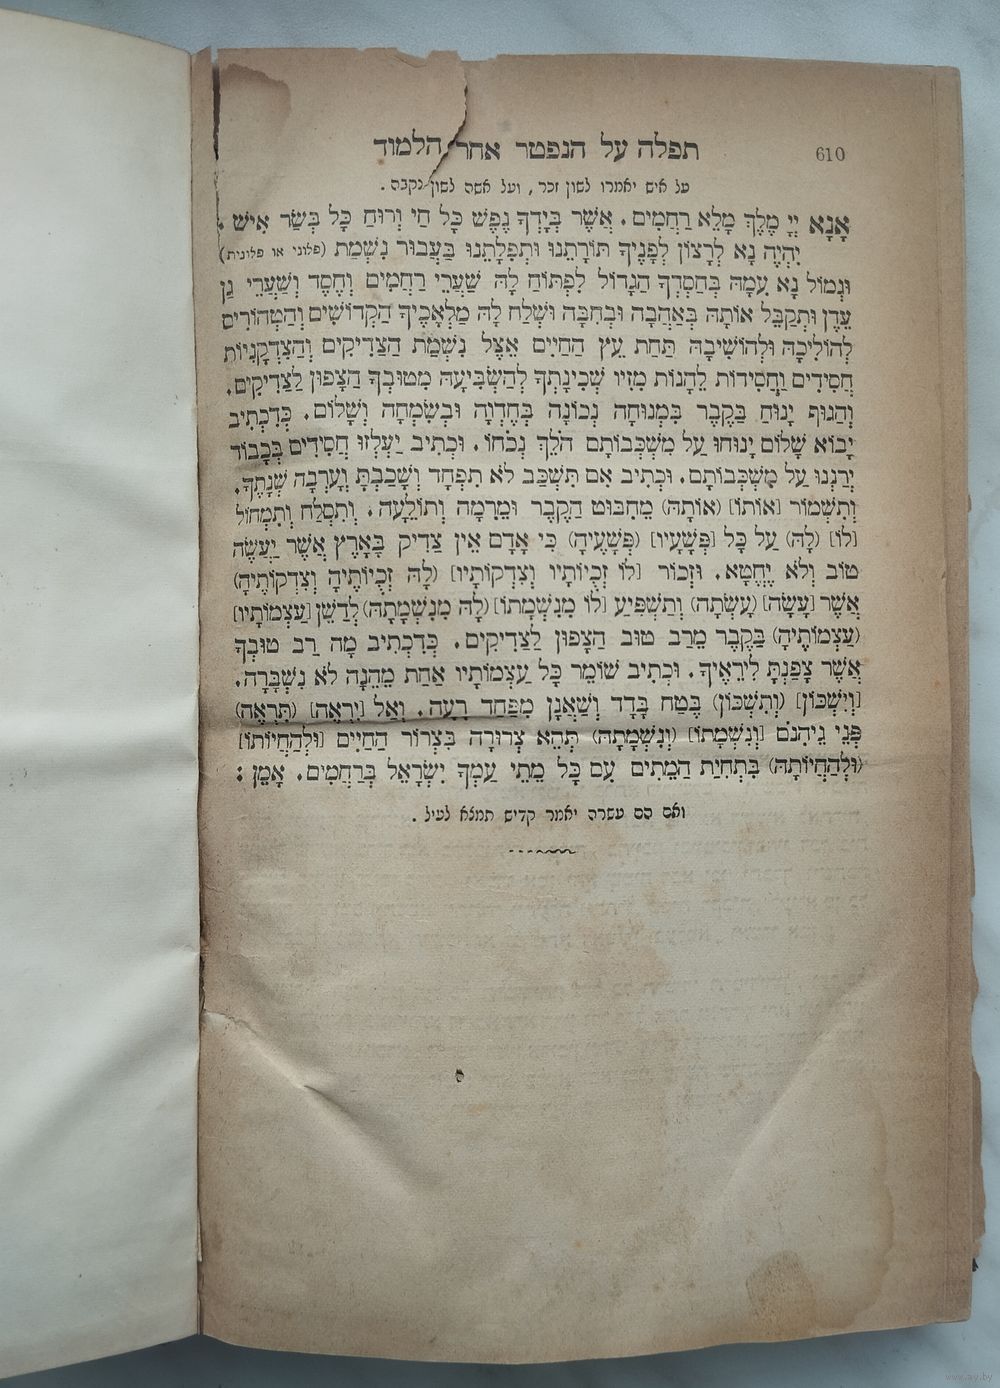 610
תפלה על הנפטר אחר הלמוד
על איש יאמרו לשון זכר, ועל אשה לשון נקבה.
אָנָא יְיָ מֶלֶךְ מָלֵא רַחֲמִים. אֲשֶׁר בְּיָדְךָ נֶפֶשׁ כָּל חַי וְרוּחַ כָּל בְּשַׂר אִישׁ.
יִהְיֶה נָא לְרָצוֹן לְפָנֶיךָ תּוֹרָתֵנוּ וּתְפִלָּתֵנוּ בַּעֲבוּר נִשְׁמַת (פלוני או פלונית)
וּגְמוֹל נָא עִמָּהּ בְּחַסְדְּךָ הַגָּדוֹל לִפְתּוֹחַ לָהּ שַׁעֲרֵי רַחֲמִים וְחֶסֶד וְשַׁעֲרֵי גַן
עֵדֶן וּתְקַבֵּל אוֹתָהּ בְּאַהֲבָה וּבְחִבָּה וּשְׁלַח לָהּ מַלְאָכֶיךָ הַקְּדוֹשִׁים וְהַטְּהוֹרִים
לְהוֹלִיכָהּ וּלְהוֹשִׁיבָהּ תַּחַת עֵץ הַחַיִּים אֵצֶל נִשְׁמַת הַצַּדִּיקִים וְהַצִּדְקָנִיּוֹת
חֲסִידִים וַחֲסִידוֹת לֵהָנוֹת מִזִּיו שְׁכִינָתְךָ לְהַשְׂבִּיעָהּ מִטּוּבְךָ הַצָּפוּן לַצַּדִּיקִים.
וְהַגּוּף יָנוּחַ בַּקֶּבֶר בִּמְנוּחָה נְכוֹנָה בְּחֶדְוָה וּבְשִׂמְחָה וְשָׁלוֹם. כְּדִכְתִיב
יָבוֹא שָׁלוֹם יָנוּחוּ עַל מִשְׁכְּבוֹתָם הֹלֵךְ נְכֹחוֹ. וּכְתִיב יַעְלְזוּ חֲסִידִים בְּכָבוֹד
יְרַנְּנוּ עַל מִשְׁכְּבוֹתָם. וּכְתִיב אִם תִּשְׁכַּב לֹא תִפְחָד וְשָׁכַבְתָּ וְעָרְבָה שְׁנָתֶךָ.
וְתִשְׁמוֹר [אוֹתוֹ] (אוֹתָהּ) מֵחִבּוּט הַקֶּבֶר וּמֵרִמָּה וְתוֹלֵעָה. וְתִסְלַח וְתִמְחוֹל
[לוֹ] (לָהּ) עַל כָּל [פְּשָׁעָיו] (פְּשָׁעֶיהָ) כִּי אָדָם אֵין צַדִּיק בָּאָרֶץ אֲשֶׁר יַעֲשֶׂה
טוֹב וְלֹא יֶחֱטָא. וּזְכוֹר [לוֹ זְכִיּוֹתָיו וְצִדְקוֹתָיו] (לָהּ זְכִיּוֹתֶיהָ וְצִדְקוֹתֶיהָ)
אֲשֶׁר [עָשָׂה] (עָשְׂתָה) וְתַשְׁפִּיעַ [לוֹ מִנִּשְׁמָתוֹ] (לָהּ מִנִּשְׁמָתָהּ) לְדַשֵּׁן [עַצְמוֹתָיו]
(עַצְמוֹתֶיהָ) בַּקֶּבֶר מֵרַב טוּב הַצָּפוּן לַצַּדִּיקִים. כְּדִכְתִיב מָה רַב טוּבְךָ
אֲשֶׁר צָפַנְתָּ לִירֵאֶיךָ. וּכְתִיב שׁוֹמֵר כָּל עַצְמוֹתָיו אַחַת מֵהֵנָּה לֹא נִשְׁבָּרָה.
[וְיִשְׁכּוֹן] (וְתִשְׁכּוֹן) בֶּטַח בָּדָד וְשַׁאֲנָן מִפַּחַד רָעָה. וְאַל [יִרְאֶה] (תִּרְאֶה)
פְּנֵי גֵיהִנֹּם [וְנִשְׁמָתוֹ] (וְנִשְׁמָתָהּ) תְּהֵא צְרוּרָה בִּצְרוֹר הַחַיִּים [וּלְהַחֲיוֹתוֹ]
(וּלְהַחֲיוֹתָהּ) בִּתְחִיַּת הַמֵּתִים עִם כָּל מֵתֵי עַמְּךָ יִשְׂרָאֵל בְּרַחֲמִים. אָמֵן:
ואם הם עשרה יאמר קדיש תמצא לעיל.
www.ay.by